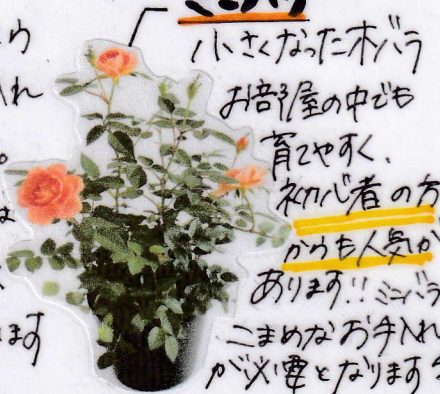 ミニバラ
小さくなった木バラ
お部屋の中でも
育てやすく、
初心者の方
からも人気が
あります!! ミニバラ
こまめなお手入れ
が必要となります
う
れ
。
は
ます